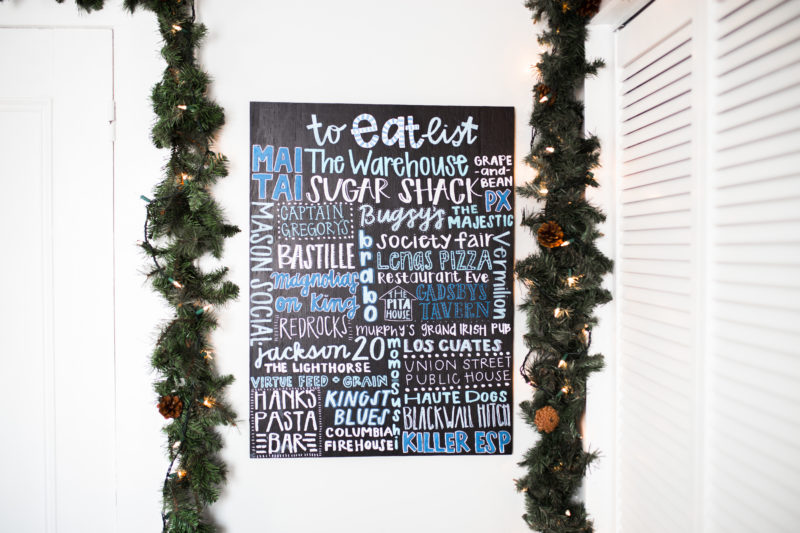 to eat list
MAI TAI
The Warehouse
GRAPE -and- BEAN
SUGAR SHACK
PX
MASON SOCIAL
CAPTAIN GREGORYS
Bugsy's
THE MAJESTIC
BASTILLE
brabo
Society fair
Vermilion
Magnolias on King
Lenas PIZZA
Restaurant Eve
THE PITA HOUSE
GADSBYS TAVERN
REDROCKS
MURPHY'S GRAND IRISH PUB
jackson 20
momo sushi
LOS CUATES
THE LIGHTHORSE
UNION STREET PUBLIC HOUSE
VIRTUE FEED + GRAIN
HANKS PASTA BAR
KINGST BLUES
HAUTE DOGS
BLACKWALL HITCH
COLUMBIA FIREHOUSE
KILLER ESP